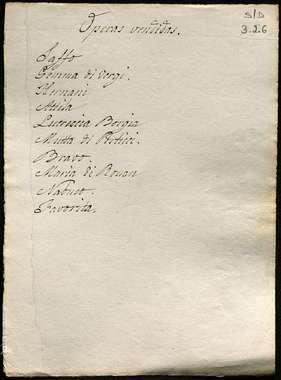 S/D
3.2.6
Operas vendidas.
Saffo
Gemma di Vergi.
Hernani
Attila
Lucrecia Borgia
Mutta di Portici.
Bravo.
Maria di Rouan
Nabuco.
Favorita.